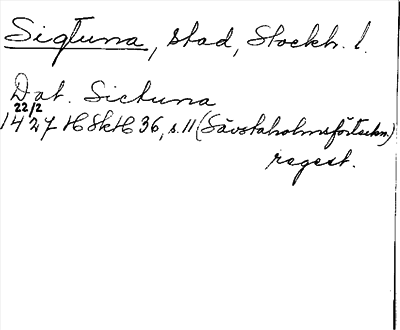 Sigtuna, stad, Stockh. l.
Dat. Sictuna
22/2
1427 HSkH 36, s. 11 (Sävstaholmsförteckn.)
regest.